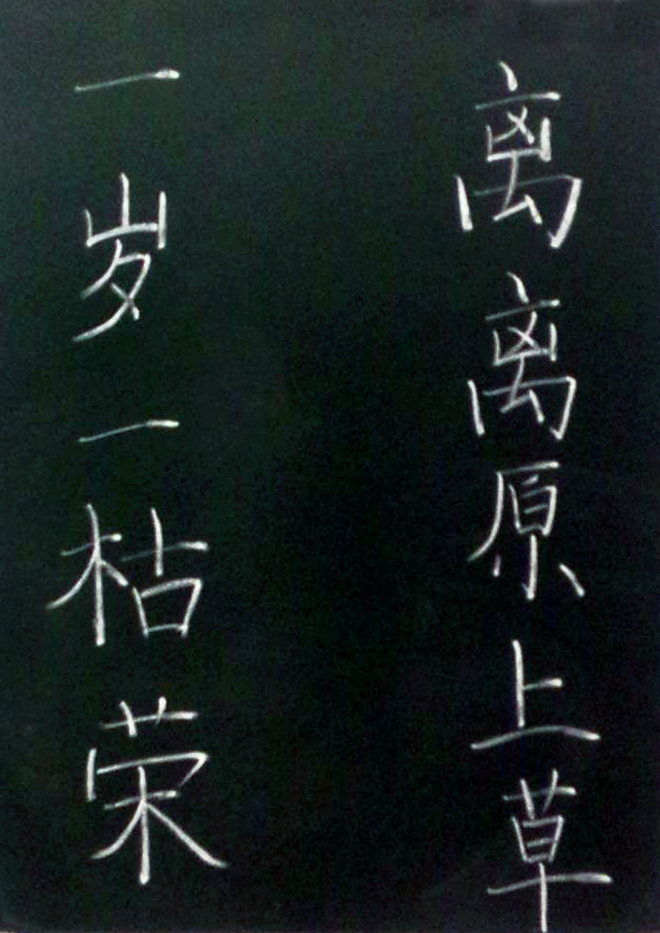 离离原上草
一岁一枯荣